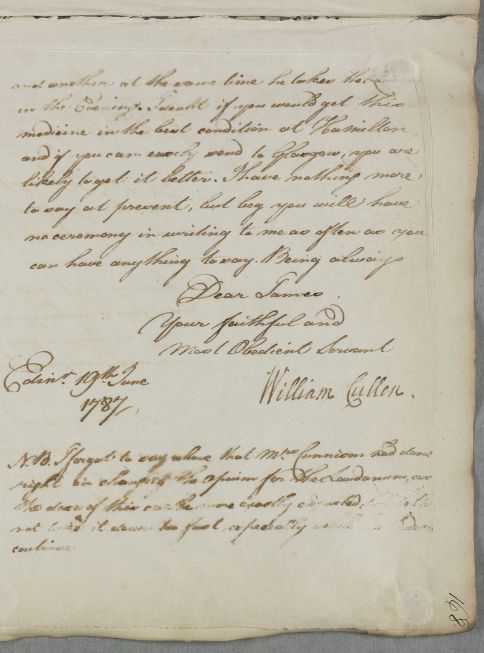 and another at the same time he takes the
in the Evening. I doubt if you would get this
medicine in the best condition at Hamilton
and if you can easily send to Glasgow, you are
likely to get it better. I have nothing more
to say at present, but beg you will have
no ceremony in writing to me as often as you
can have anything to say. Being always
Dear James.
Your faithful and
Most Obedient Servant
Edinr. 19th June
1787
William Cullen.
N.B. I forgot to say above that Mrs Cunnison had done
right in changing the opium for the Laudanum, as
the dose of this can be more exactly adjusted,
not it down too fast, especially
continue
168